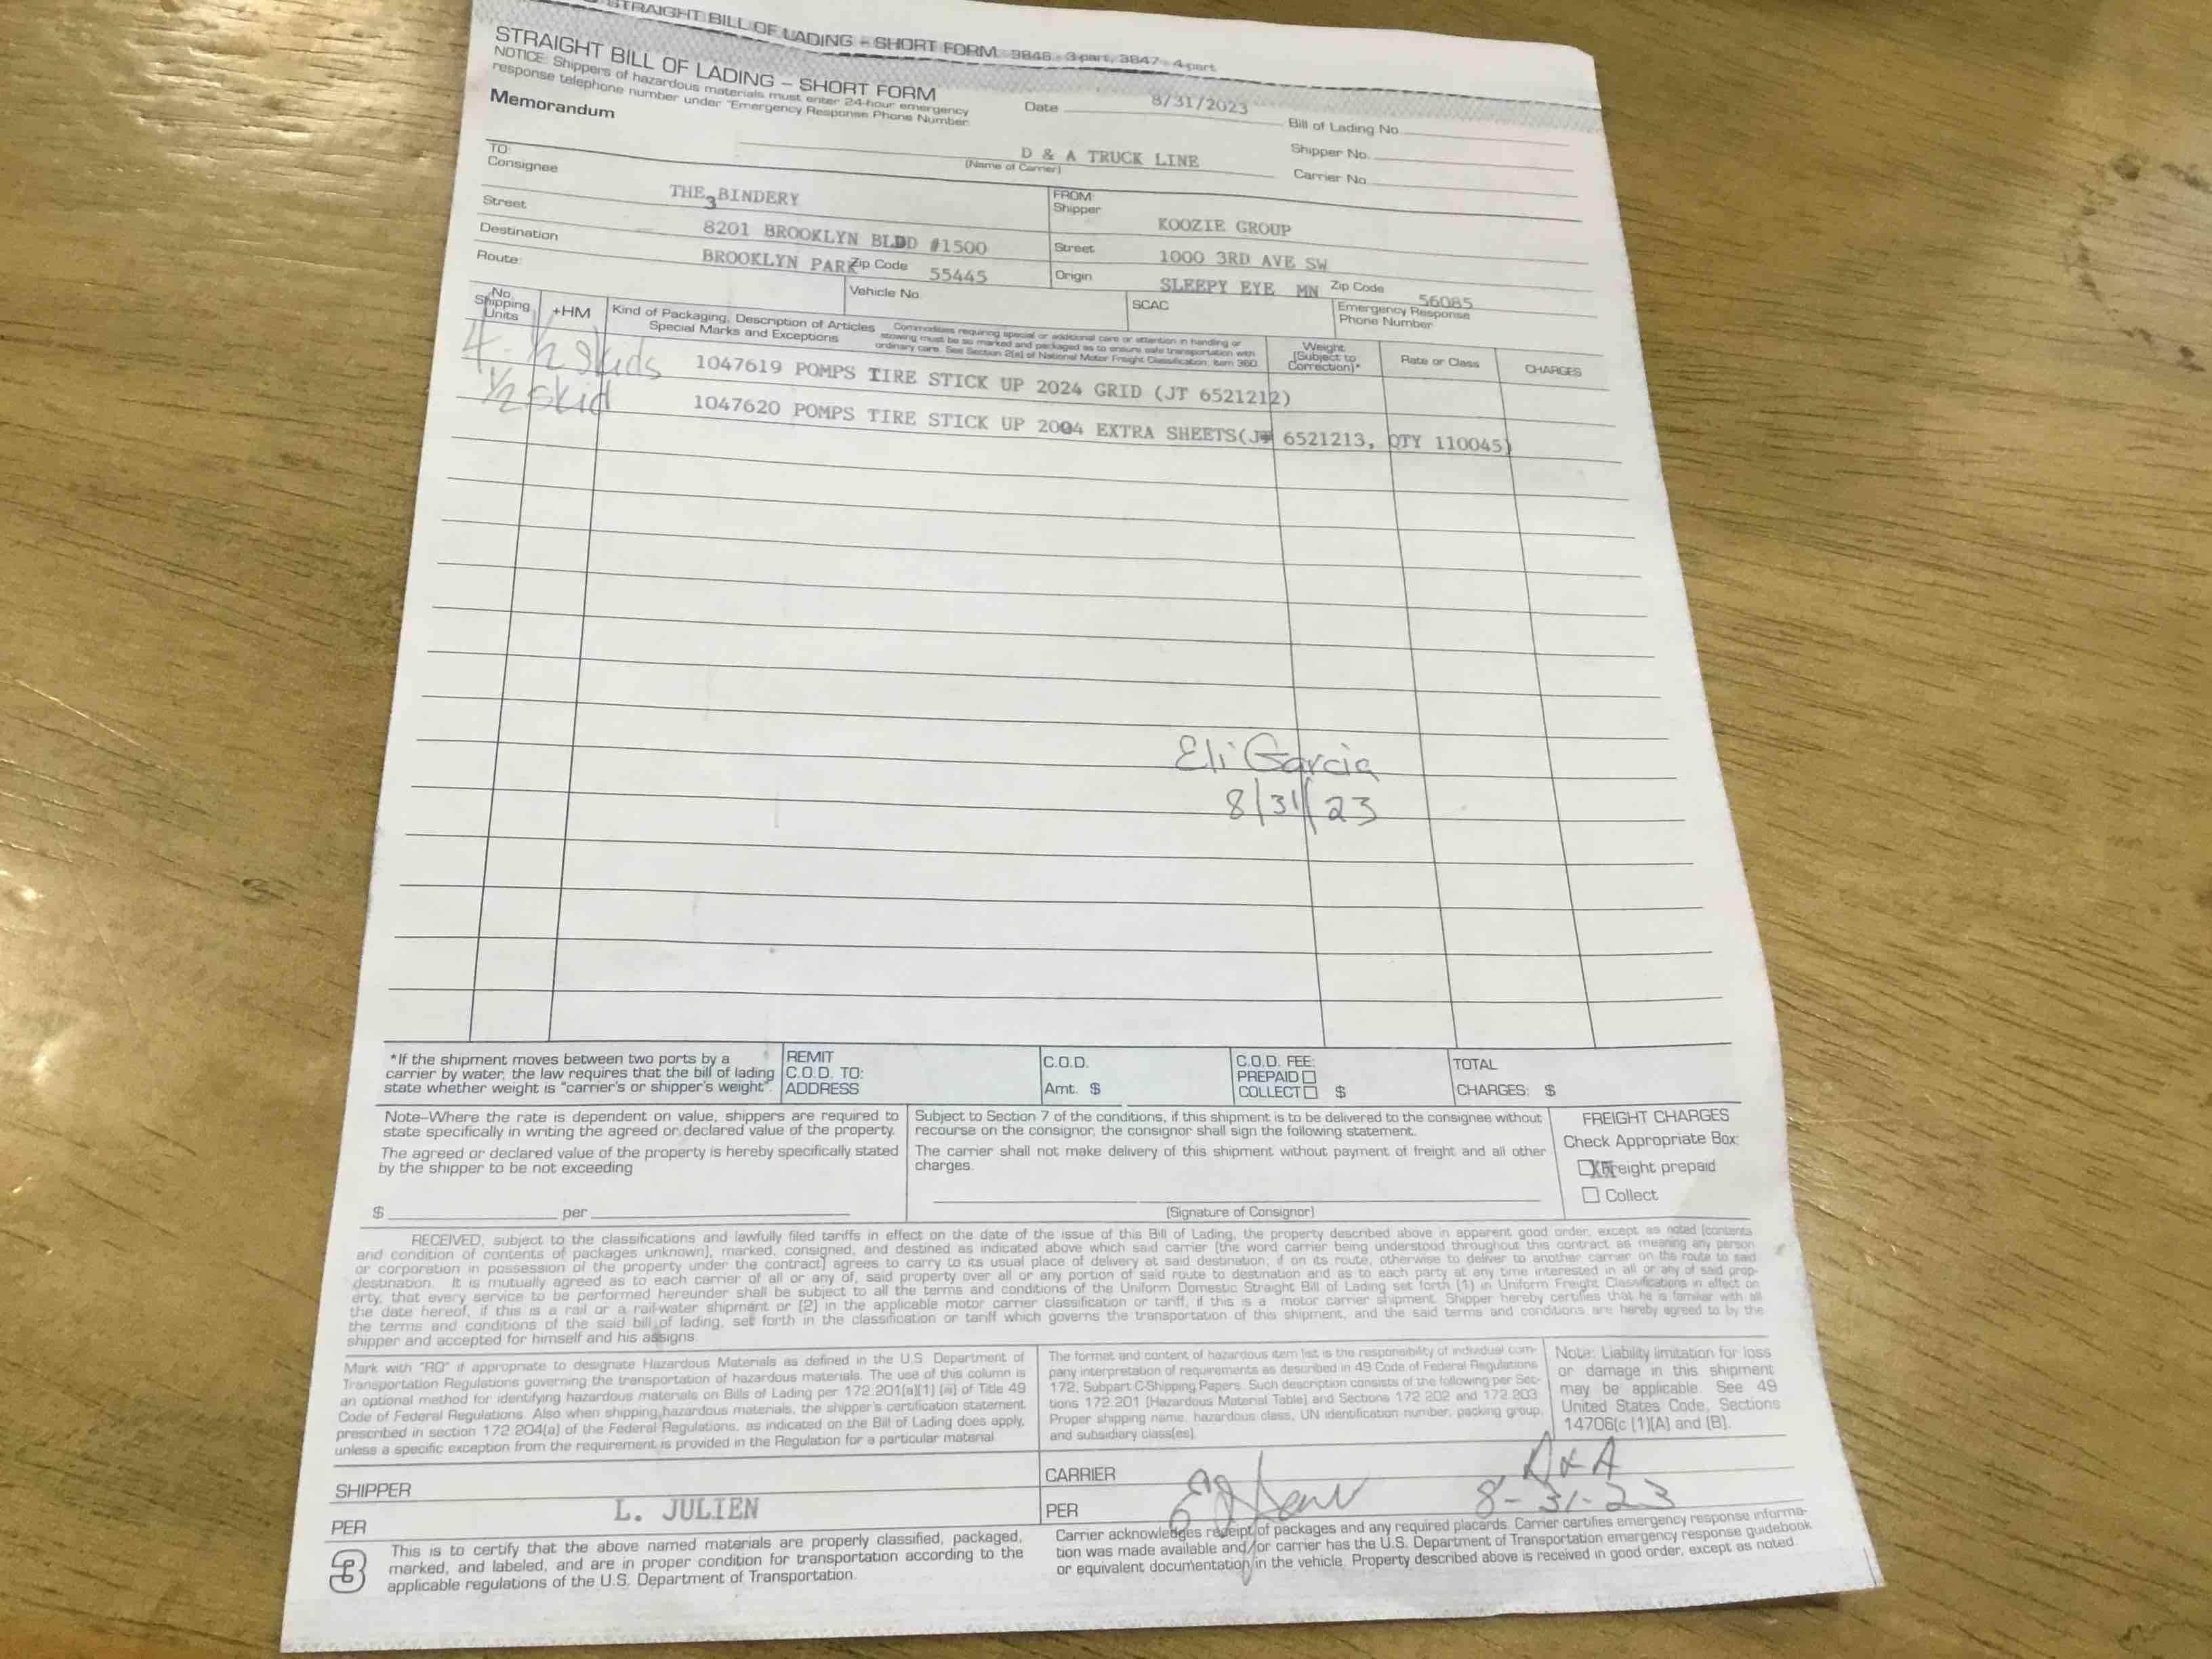 STRAIGHT BILL OF LADING – SHORT FORM 3846 - 3-part, 3847 - 4-part
STRAIGHT BILL OF LADING – SHORT FORM
NOTICE: Shippers of hazardous materials must enter 24-hour emergency
response telephone number under "Emergency Response Phone Number.
Memorandum
Date 8/31/2023
Bill of Lading No.
D & A TRUCK LINE
(Name of Carrier)
Shipper No.
Carrier No.
TO:
Consignee THE BINDERY
3
Street 8201 BROOKLYN BLDD #1500
Destination BROOKLYN PARK Zip Code 55445
FROM:
Shipper KOOZIE GROUP
Street 1000 3RD AVE SW
Origin SLEEPY EYE MN Zip Code 56085
Route:
Vehicle No.
SCAC
Emergency Response
Phone Number
No.
Shipping
Units
+HM
Kind of Packaging, Description of Articles
Special Marks and Exceptions
Commodities requiring special or additional care or attention in handling or
stowing must be so marked and packaged as to ensure safe transportation with
ordinary care. See Section 2(e) of National Motor Freight Classification, Item 360.
Weight
(Subject to
Correction)*
Rate or Class
CHARGES
4 - 1/2 skids 1047619 POMPS TIRE STICK UP 2024 GRID (JT 6521212)
1/2 skid 1047620 POMPS TIRE STICK UP 2004 EXTRA SHEETS(JT 6521213, QTY 110045)
Eli Garcia
8/31/23
*If the shipment moves between two ports by a
carrier by water, the law requires that the bill of lading
state whether weight is "carrier's or shipper's weight".
REMIT
C.O.D. TO:
ADDRESS
C.O.D.
Amt. $
C.O.D. FEE:
PREPAID
COLLECT $
TOTAL
CHARGES: $
Note–Where the rate is dependent on value, shippers are required to
state specifically in writing the agreed or declared value of the property.
The agreed or declared value of the property is hereby specifically stated
by the shipper to be not exceeding
$ per
Subject to Section 7 of the conditions, if this shipment is to be delivered to the consignee without
recourse on the consignor, the consignor shall sign the following statement.
The carrier shall not make delivery of this shipment without payment of freight and all other
charges.
(Signature of Consignor)
FREIGHT CHARGES
Check Appropriate Box:
X Freight prepaid
Collect
RECEIVED, subject to the classifications and lawfully filed tariffs in effect on the date of the issue of this Bill of Lading, the property described above in apparent good order, except as noted (contents
and condition of contents of packages unknown), marked, consigned, and destined as indicated above which said carrier (the word carrier being understood throughout this contract as meaning any person
or corporation in possession of the property under the contract) agrees to carry to its usual place of delivery at said destination, if on its route, otherwise to deliver to another carrier on the route to said
destination. It is mutually agreed as to each carrier of all or any of, said property over all or any portion of said route to destination and as to each party at any time interested in all or any of said prop-
erty, that every service to be performed hereunder shall be subject to all the terms and conditions of the Uniform Domestic Straight Bill of Lading set forth (1) in Uniform Freight Classifications in effect on
the date hereof, if this is a rail or a rail-water shipment or (2) in the applicable motor carrier classification or tariff, if this is a motor carrier shipment. Shipper hereby certifies that he is familiar with all
the terms and conditions of the said bill of lading, set forth in the classification or tariff which governs the transportation of this shipment, and the said terms and conditions are hereby agreed to by the
shipper and accepted for himself and his assigns.
Mark with "RQ" if appropriate to designate Hazardous Materials as defined in the U.S. Department of
Transportation Regulations governing the transportation of hazardous materials. The use of this column is
an optional method for identifying hazardous materials on Bills of Lading per 172.201(a)(1) (iii) of Title 49
Code of Federal Regulations. Also when shipping hazardous materials, the shipper's certification statement
prescribed in section 172.204(a) of the Federal Regulations, as indicated on the Bill of Lading does apply,
unless a specific exception from the requirement is provided in the Regulation for a particular material.
The format and content of hazardous item list is the responsibility of individual com-
pany interpretation of requirements as described in 49 Code of Federal Regulations
172, Subpart C-Shipping Papers. Such description consists of the following per Sec-
tions 172.201 (Hazardous Material Table) and Sections 172.202 and 172.203:
Proper shipping name, hazardous class, UN identification number, packing group,
and subsidiary class(es).
Note: Liability limitation for loss
or damage in this shipment
may be applicable. See 49
United States Code, Sections
14706(c (1)(A) and (B).
SHIPPER
PER L. JULIEN
CARRIER D & A
PER 8-31-23
3
This is to certify that the above named materials are properly classified, packaged,
marked, and labeled, and are in proper condition for transportation according to the
applicable regulations of the U.S. Department of Transportation.
Carrier acknowledges receipt of packages and any required placards. Carrier certifies emergency response informa-
tion was made available and/or carrier has the U.S. Department of Transportation emergency response guidebook
or equivalent documentation in the vehicle. Property described above is received in good order, except as noted.